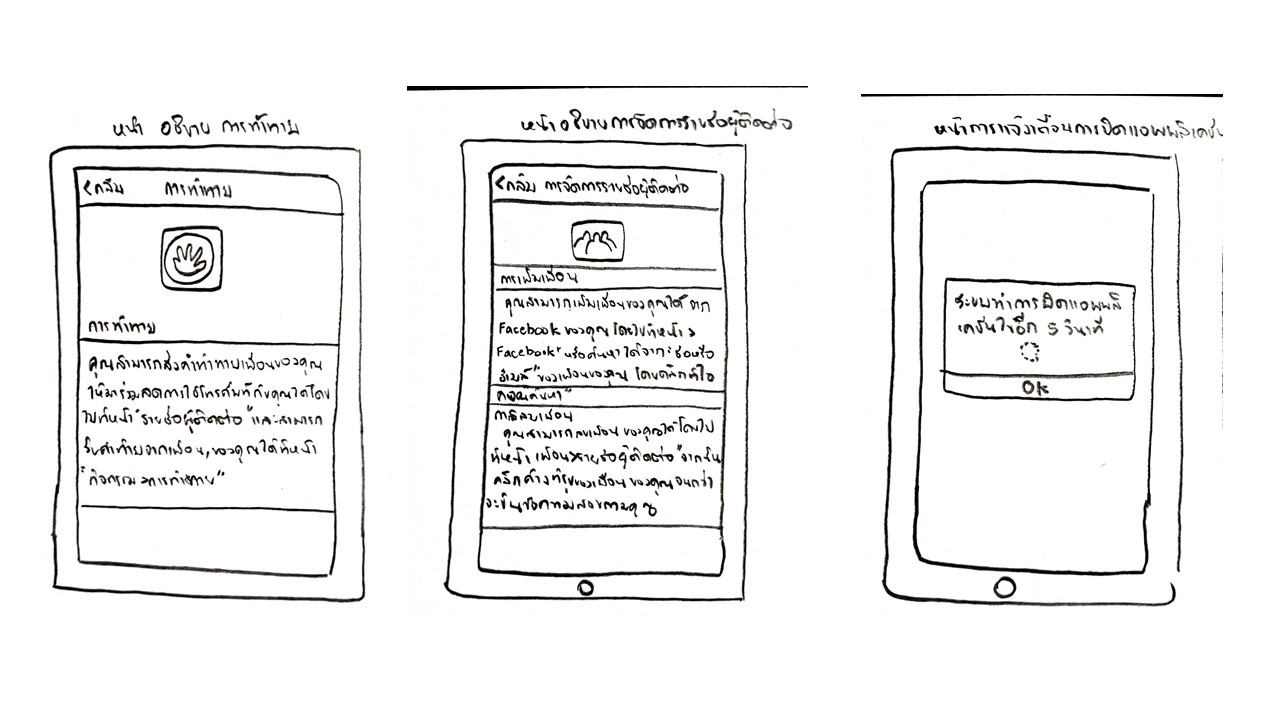 หน้า อธิบาย การท้าทาย
<กลับ การท้าทาย
การท้าทาย
คุณสามารถส่งคำท้าทายเพื่อนของคุณ
ให้มาร่วมลดการใช้โทรศัพท์กับคุณได้โดย
ไปที่หน้า "รายชื่อผู้ติดต่อ" และสามารถ
รับคำท้าทายจากเพื่อนของคุณได้ที่หน้า
"กิจกรรม>การท้าทาย"
หน้า อธิบายการจัดการรายชื่อผู้ติดต่อ
<กลับ การจัดการรายชื่อผู้ติดต่อ
การเพิ่มเพื่อน
คุณสามารถเพิ่มเพื่อนของคุณได้ จาก
Facebook ของคุณ โดยไปที่หน้า >
Facebook" หรือค้นหาได้จาก "ชื่อหรือ
อีเมล์" ของเพื่อนของคุณ โดยคลิกที่ไอ
คอนค้นหา"
การลบเพื่อน
คุณสามารถลบเพื่อนของคุณได้โดยไป
ที่หน้า เพื่อน>รายชื่อผู้ติดต่อ" จากนั้น
คลิกค้างที่รูปของเพื่อนของคุณจนกว่า
จะขึ้นข้อความสอบถามคุณ
หน้าการแจ้งเตือนการปิดแอพพลิเคชัน
ระบบทำการปิดแอพพลิ
เคชันในอีก 5 วินาที
OK